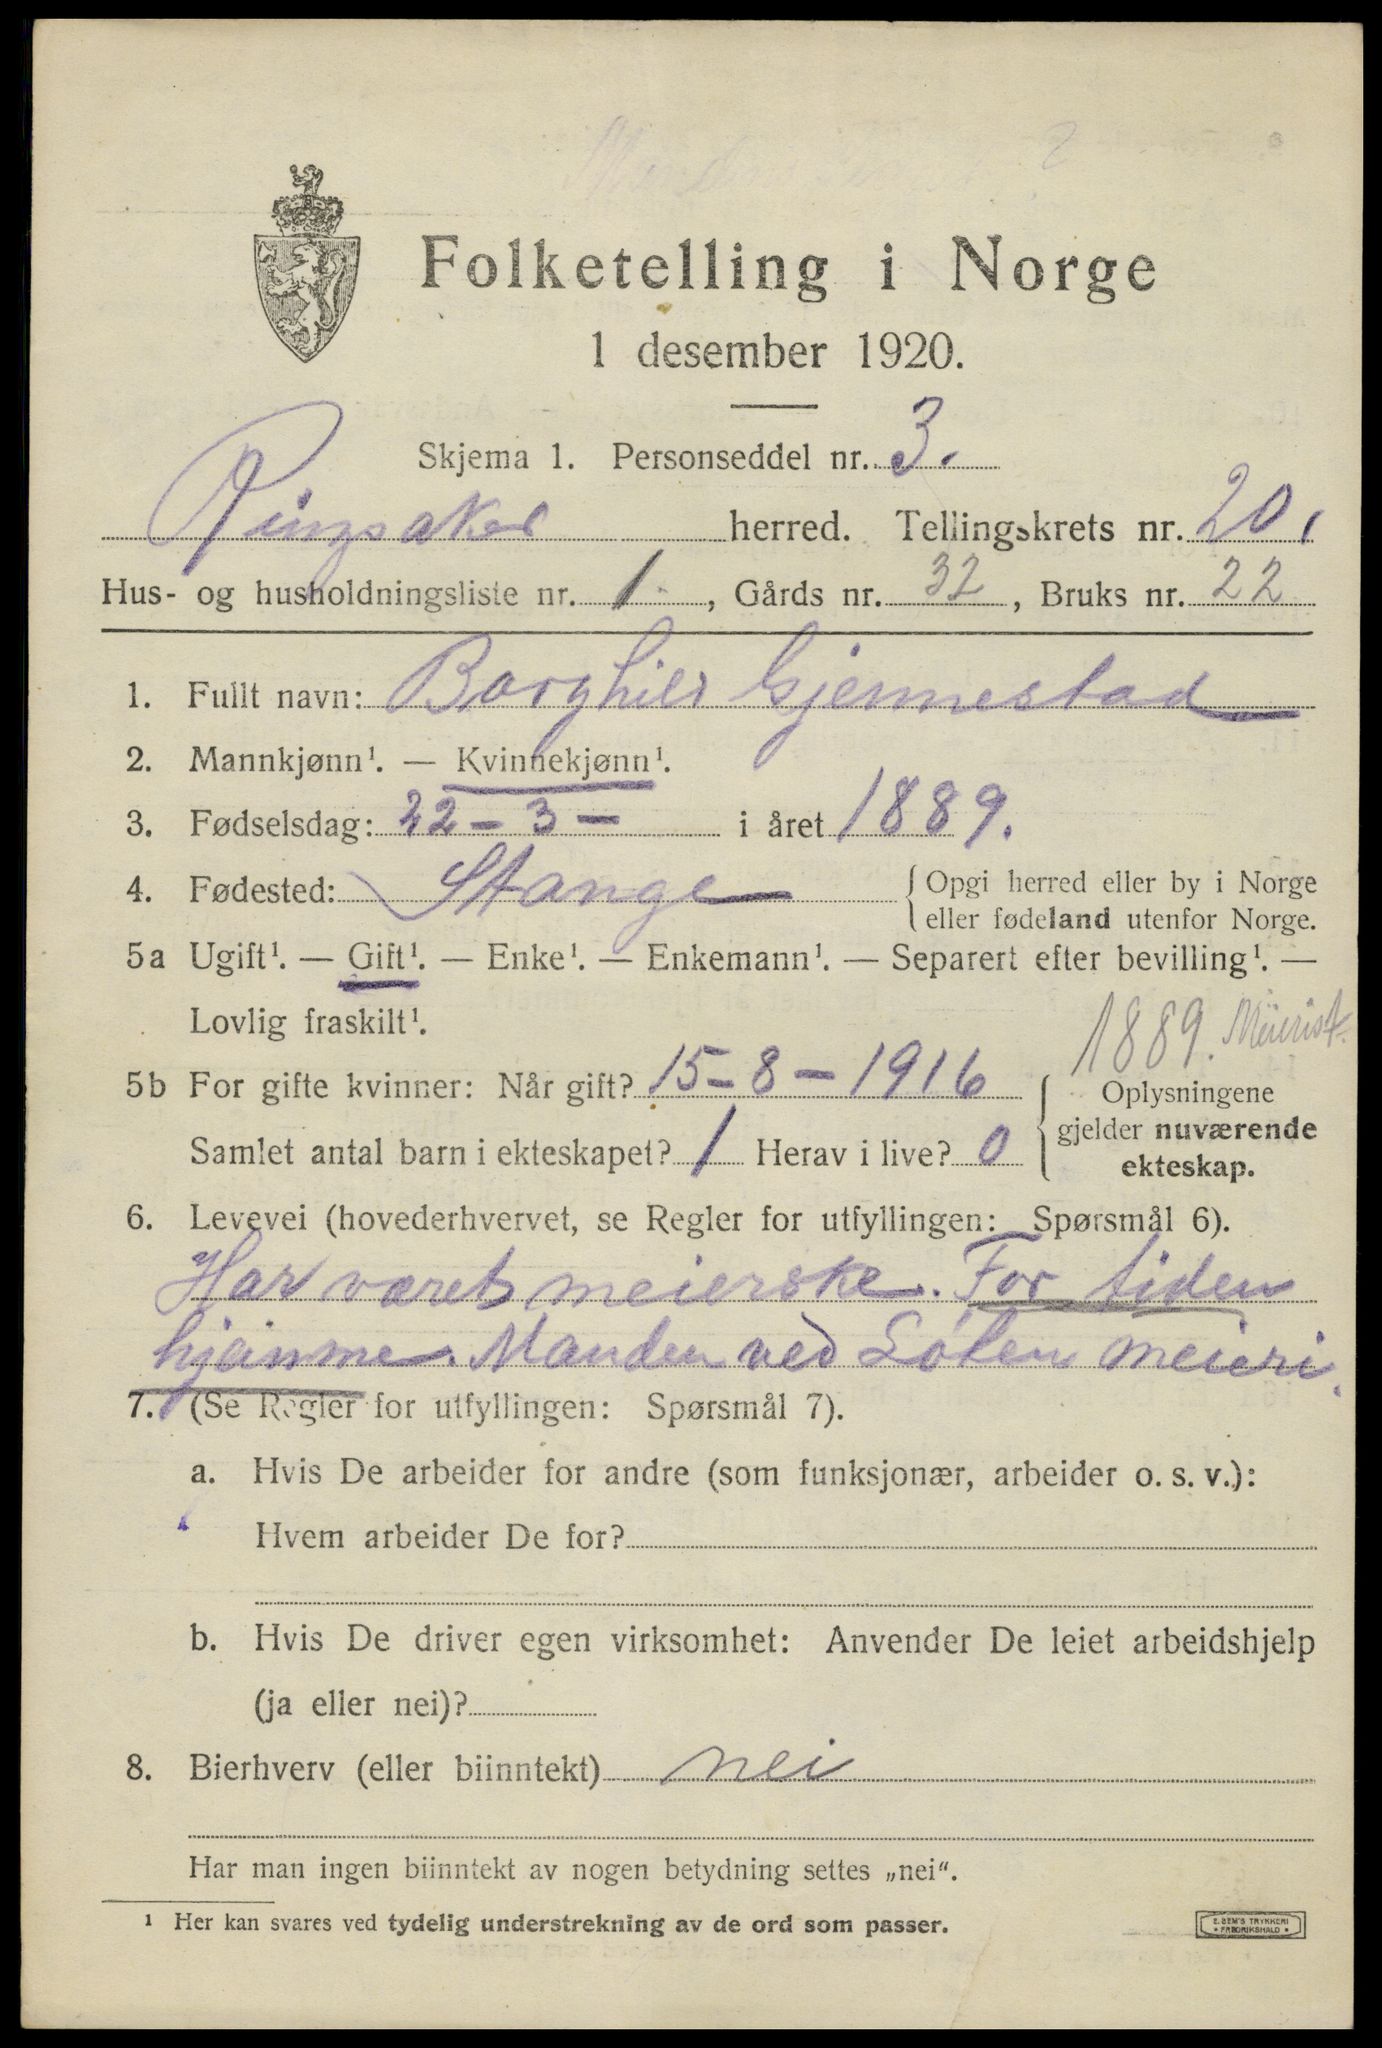 Folketelling i Norge
1 desember 1920.
Skjema 1. Personseddel nr. 3.
Ringsaker herred. Tellingskrets nr. 20.
Hus- og husholdningsliste nr. 1. , Gårds nr. 32 , Bruks nr. 22
1. Fullt navn: Borghild Gjennestad
2. Mannkjønn¹. — Kvinnekjønn¹.
3. Fødselsdag: 22 – 3 – i året 1889.
4. Fødested: Stange { Opgi herred eller by i Norge
eller fødeland utenfor Norge.
5a Ugift¹. — Gift¹. — Enke¹. — Enkemann¹. — Separert efter bevilling¹. —
Lovlig fraskilt¹.
1889. Meierist.
5b For gifte kvinner: Når gift? 15 – 8 – 1916
Samlet antal barn i ekteskapet? 1 Herav i live? 0
{ Oplysningene
gjelder nuværende
ekteskap.
6. Levevei (hovederhvervet, se Regler for utfyllingen: Spørsmål 6).
Har været meierske. For tiden
hjemme. Manden ved Løten meieri.
7. (Se Regler for utfyllingen: Spørsmål 7).
a. Hvis De arbeider for andre (som funksjonær, arbeider o. s. v.):
Hvem arbeider De for?
b. Hvis De driver egen virksomhet: Anvender De leiet arbeidshjelp
(ja eller nei)?
8. Bierhverv (eller biinntekt) nei
Har man ingen biinntekt av nogen betydning settes „nei“.
¹ Her kan svares ved tydelig understrekning av de ord som passer.
E. SEM'S TRYKKERI
• FREDRIKSHALD •